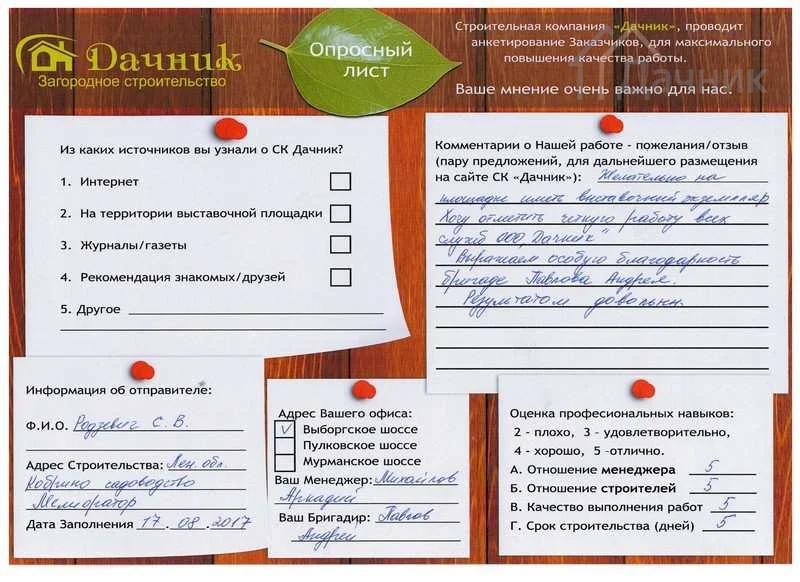 Дачник
Загородное строительство
Опросный
лист
Строительная компания «Дачник», проводит
анкетирование Заказчиков, для максимального
повышения качества работы.
Ваше мнение очень важно для нас.
Дачник
Из каких источников вы узнали о СК Дачник?
1. Интернет
2. На территории выставочной площадки
3. Журналы/газеты
4. Рекомендация знакомых/друзей
5. Другое
Комментарии о Нашей работе - пожелания/отзыв
(пару предложений, для дальнейшего размещения
на сайте СК «Дачник»): Желательно на
площадке иметь выставочный экземпляр
Хочу отметить четкую работу всех
служб ООО „Дачник"
Выражаем особую благодарность
бригаде Павлова Андрея.
Результатом довольны.
Информация об отправителе:
Ф.И.О. Родзевич С. В.
Адрес Строительства: Лен. обл.
Кобрино садоводство
Мелиоратор
Дата Заполнения 17.08.2017
Адрес Вашего офиса:
V Выборгское шоссе
Пулковское шоссе
Мурманское шоссе
Ваш Менеджер: Михайлов
Аркадий
Ваш Бригадир: Павлов
Андрей
Оценка професиональных навыков:
2 - плохо, 3 - удовлетворительно,
4 - хорошо, 5 -отлично.
А. Отношение менеджера 5
Б. Отношение строителей 5
В. Качество выполнения работ 5
Г. Срок строительства (дней) 5